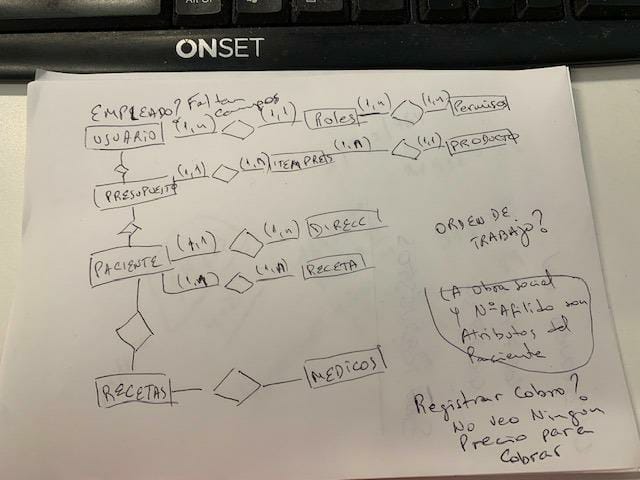 ONSET
EMPLEADO? Faltan
campos
USUARIO (1,n) (1,1) Roles (1,n) (1,n) Permisos
PRESUPUESTO (1,1) (1,n) ITEM PRES (1,n) (1,1) PRODUCTO
PACIENTE (1,1) (1,n) DIRECC
(1,n) (1,n) RECETA
RECETAS MEDICOS
ORDEN DE
TRABAJO?
LA Obra social
y Nº Afilido son
Atributos del
Paciente
Registrar Cobro?
No veo Ningun
Precio para
Cobrar